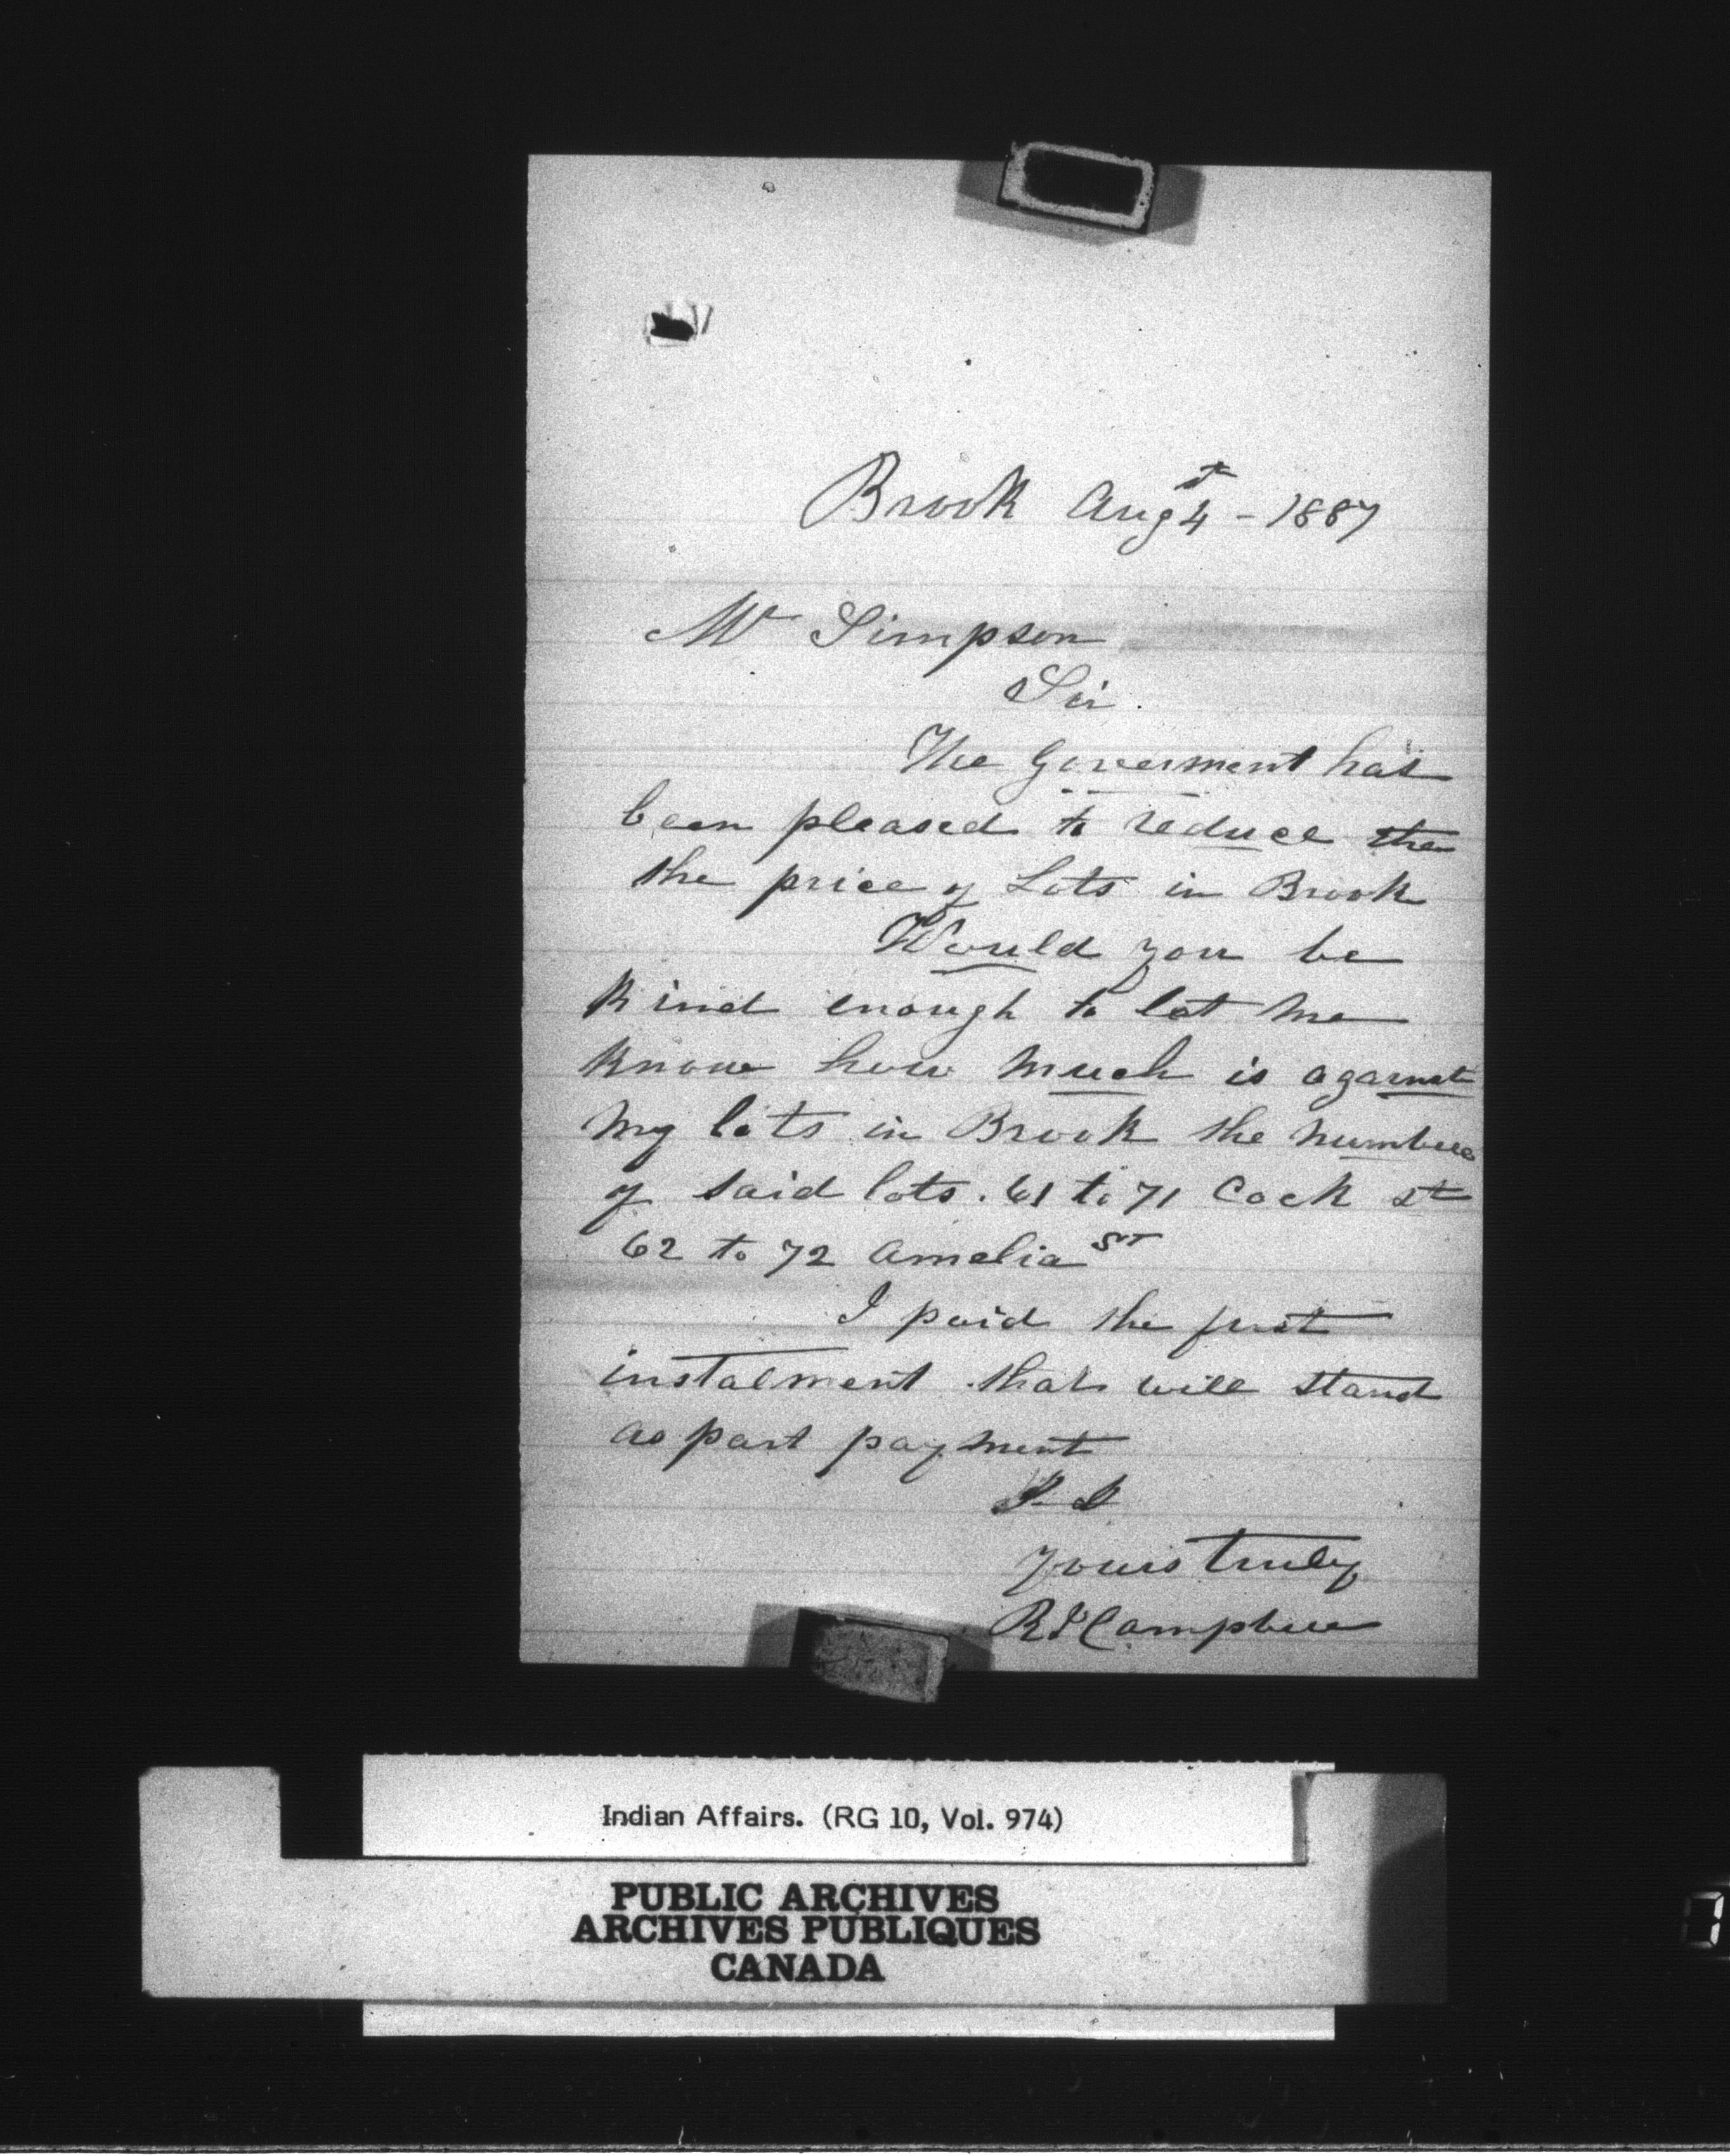 Brook Aug 4th - 1887
Mr Simpson
Sir.
The Goverment has
been pleased to reduce the
the price of Lots in Brook
Would you be
kind enough to let me
know how much is against
my lots in Brook the number
of said lots. 61 to 71 Cock st
62 to 72 Amelia ST
I paid the first
instalment that will stand
as part payment
Yours Truly
Campbell
Indian Affairs. (RG 10, Vol. 974)
PUBLIC ARCHIVES
ARCHIVES PUBLIQUES
CANADA